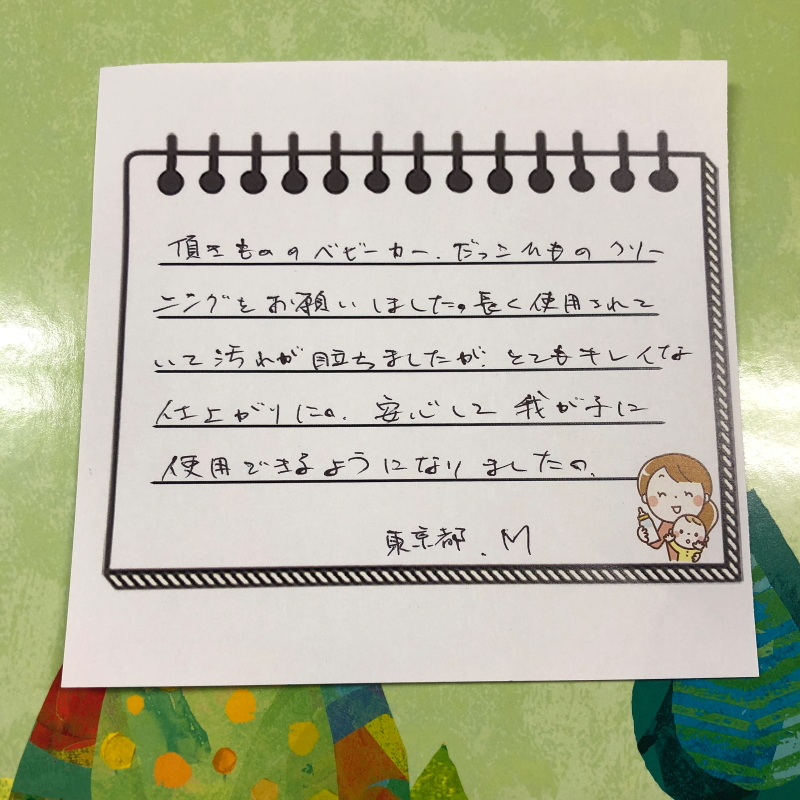 頂きもののベビーカー、だっこひものクリー
ニングをお願いしました。長く使用されて
いて汚れが目立ちましたが、とてもキレイな
仕上がりに。安心して我が子に
使用できるようになりました。
東京都、M